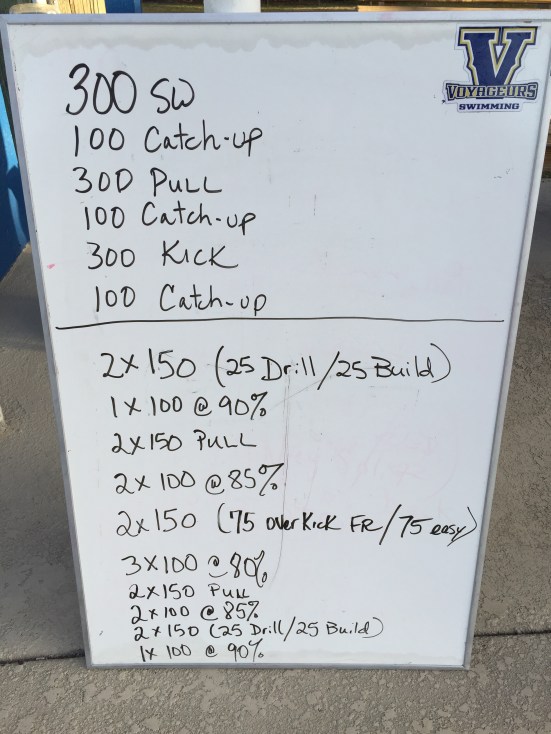 V
VOYAGEURS
SWIMMING
300 SW
100 Catch-up
300 PULL
100 Catch-up
300 KICK
100 Catch-up
2x150 (25 Drill/25 Build)
1x100 @ 90%
2x150 PULL
2x100 @ 85%
2x150 (75 overKick FR/75 easy)
3x100 @ 80%
2x150 PULL
2x100 @ 85%
2x150 (25 Drill/25 Build)
1x100 @ 90%